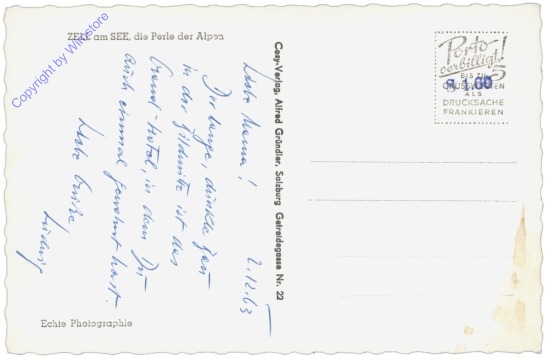 ZELL am SEE, die Perle der Alpen
Copyright by Winstore
2.12.63
Liebe Mama!
Der lange, dunkle
in der Bildmitte ist das
Grand-Hotel, in dem Du
auch einmal gewohnt hast.
Liebe Grüße
Ludwig
Echte Photographie
Cosy-Verlag, Alfred Gründler, Salzburg Getreidegasse Nr. 22
Porto
verbilligt!
BIS ZU 5
GRUSSWORTEN
ALS
DRUCKSACHE
FRANKIEREN
S 1.60